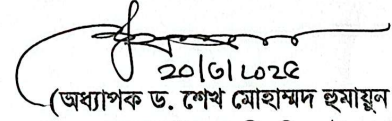 ২০/৩/২০২৫
(অধ্যাপক ড. শেখ মোহাম্মদ হুমায়ুন